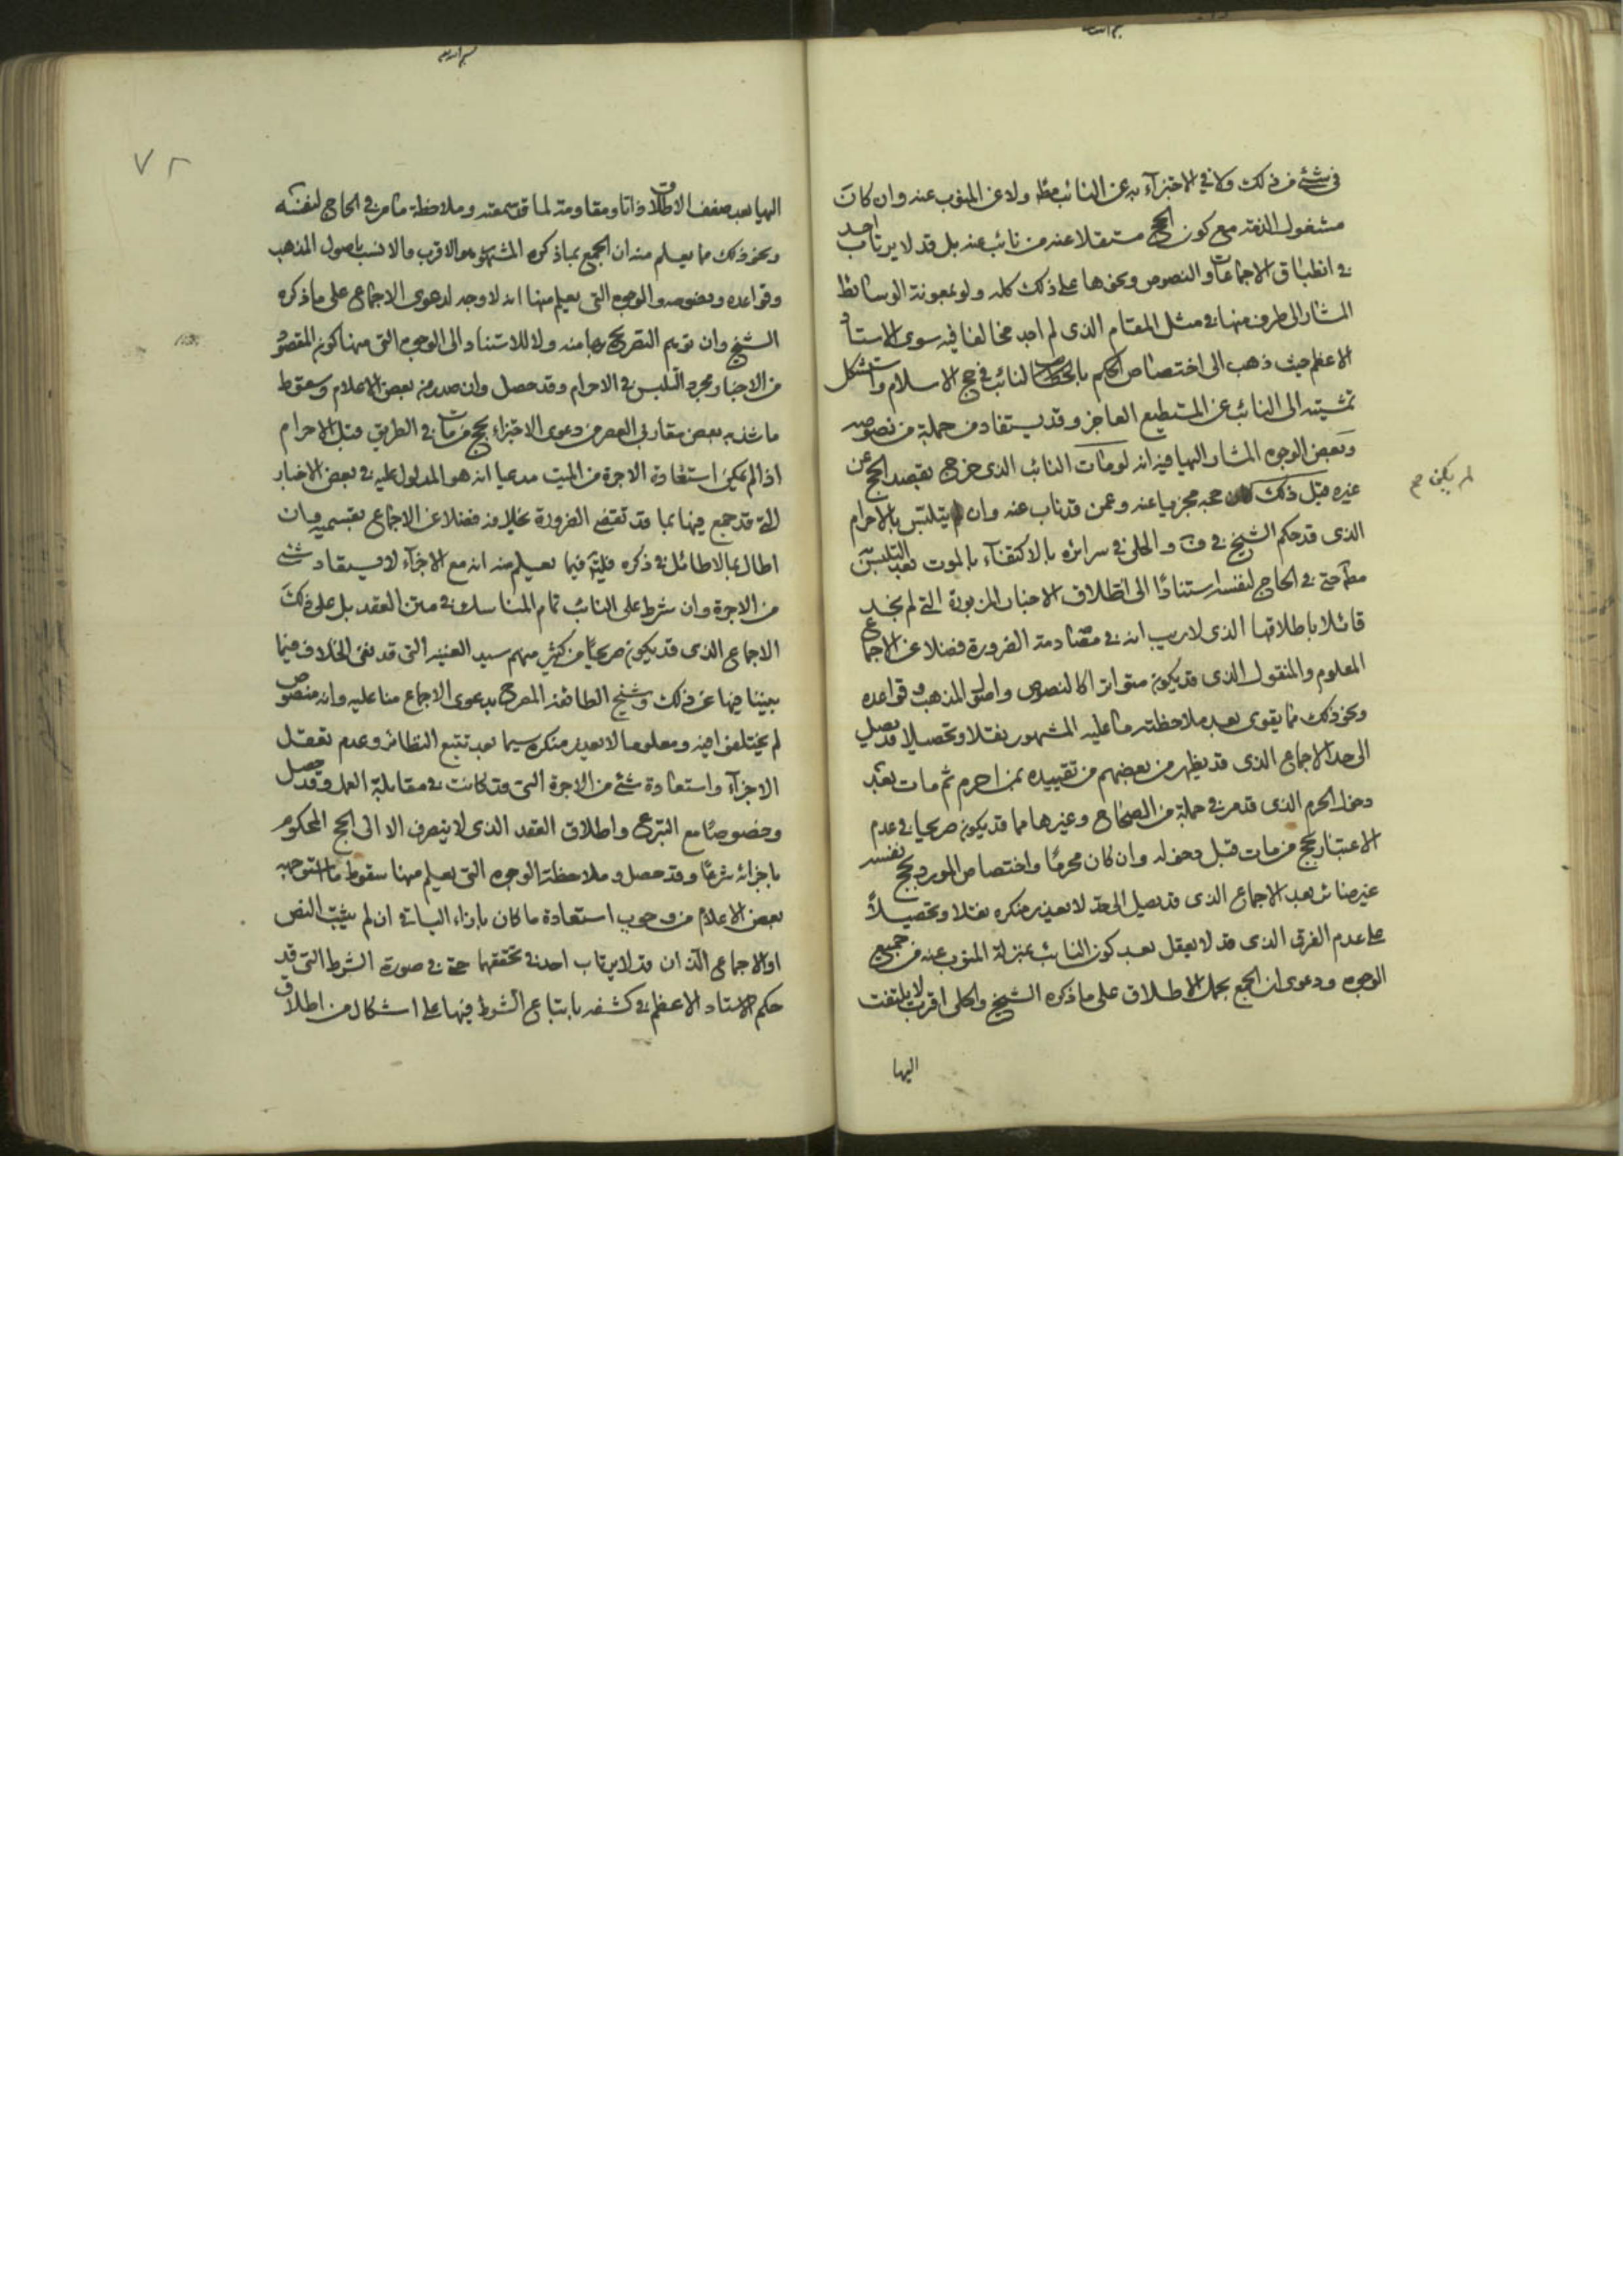 في شئ من ذلك ولا في الاجتزاء به عن النائب مطه ولا عن المنوب عنه وان كان
مشغول الذمة مع كون الحج مستقلا عنه من نائب عنه بل قد لا يرتاب احد
في انطباق الاجماعات والنصوص ونحوها على ذلك كله ولو بمعونة الوسائط
المشار الى طرف منها في مثل المقام الذى لم اجد مخالفا فيه سوى الاستاد
الاعظم حيث ذهب الى اختصاص الحكم بالنائب في حج الاسلام واستشكل
تمشيته الى النائب عن المستطيع العاجز وقد يستفاد من جملة من نصوصه
وبعض الوجوه المشار اليها فيه انه لو مات النائب الذى خرج بقصد الحج عن
غيره قبل ذلك لم يكن حجه مجزيا عنه وعمن قد ناب عنه وان تلبس بالاحرام
الذى قد حكم الشيخ في ف والحلى في سرائره بالاكتفاء بالموت بعد التلبس به
مطه حتى في الحاج لنفسه استنادا الى اطلاق الاخبار المزبورة التي لم نجد
قائلا باطلاقها الذى لا ريب انه في مصادمة الضرورة فضلا عن الاجماع
المعلوم والمنقول الذى قد يكون متواترا كالنصوص واصول المذهب وقواعده
ونحو ذلك مما يقوى بعد ملاحظته ما عليه المشهور نقلا وتحصيلا قد يصل
الى حد الاجماع الذى قد يظهر من بعضهم من تقييده بمن احرم ثم مات بعد
دخول الحرم الذى قد مر في جملة من الصحاح وغيرها مما قد يكون صريحا في عدم
الاعتبار بحج من مات قبل دخوله وان كان محرما واختصاص المورد بحج نفسه
غير ضائر بعد الاجماع الذى قد يصل الى حد لا يعذر منكره نقلا وتحصيلا
على عدم الفرق الذى قد لا يعقل بعد كون النائب بمنزلة المنوب عنه من جميع
الوجوه ودعوى ان الجمع بحمل الاطلاق على ما ذكره الشيخ والحلى اقرب لا يلتفت
اليها
لم يكن صح
٧٢
اليها بعد ضعف الاطلاق ذاتا ومقاومة لما قد سمعته وملاحظة ما مر في الحاج لنفسه
ونحو ذلك مما يعلم منه ان الجمع بما ذكره المشهور هو الاقرب والانسب باصول المذهب
وقواعده ونصوصه والوجوه التى يعلم منها انه لا وجه لدعوى الاجماع على ما ذكره
الشيخ وان توهم التصريح بها منه ولا للاستناد الى الوجوه التى منها كون المقصود
من الاخبار مجرد التلبس في الاحرام وقد حصل وان صدر من بعض الاعلام وسقوط
ما شذ به بعض مقاربي العصر من دعوى الاجتزاء بحج من مات في الطريق قبل الاحرام
اذا لم يمكن استعادة الاجرة من الميت مدعيا انه هو المدلول عليه في بعض الاخبار
التي قد جمع فيها بما قد تقضى الضرورة بخلافه فضلا عن الاجماع بقسميه وان
اطال بما لا طائل في ذكره فليته فيما يعلم منه انه مع الاجزاء لا يستعاد شئ
من الاجرة وان شرط على النائب تمام المناسك في متن العقد بل على ذلك
الاجماع الذى قد يكون صريحا من كثير منهم سيد الغنية التى قد نفى الخلاف فيما
بيننا فيها عن ذلك وشيخ الطائفة المصرح بدعوى الاجماع منا عليه وانه منصوص
لم يختلفوا فيه ومعلوما لا يعذر منكره سيما بعد تتبع النظائر وعدم تعقل
الاجزاء واستعادة شئ من الاجرة التى قد كانت في مقابلة العمل وقد حصل
وخصوصا مع التبرع واطلاق العقد الذى لا ينصرف الا الى الحج المحكوم
باجزائه شرعا وقد حصل وملاحظة الوجوه التى يعلم منها سقوط ما استوجبه
بعض الاعلام من وجوب استعادة ما كان بازاء الباقي ان لم يثبت النص
او الاجماع الذان قد لا يرتاب احد في تحققهما حتى في صورة الشرط التى قد
حكم الاستاد الاعظم في كشفه باتباع الشرط فيها على اشكال من اطلاق